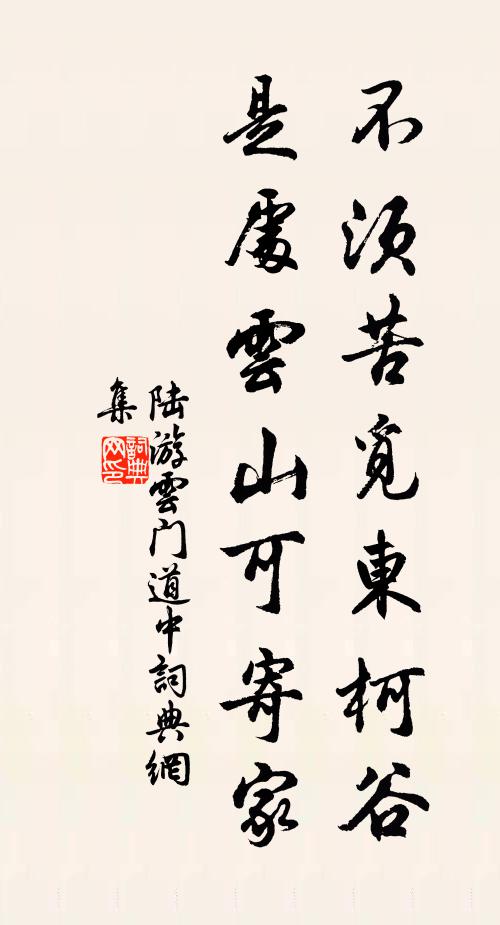 不須苦覓東柯谷
是處雲山可寄家
陆游雲门道中詞典網
集
詞典网印